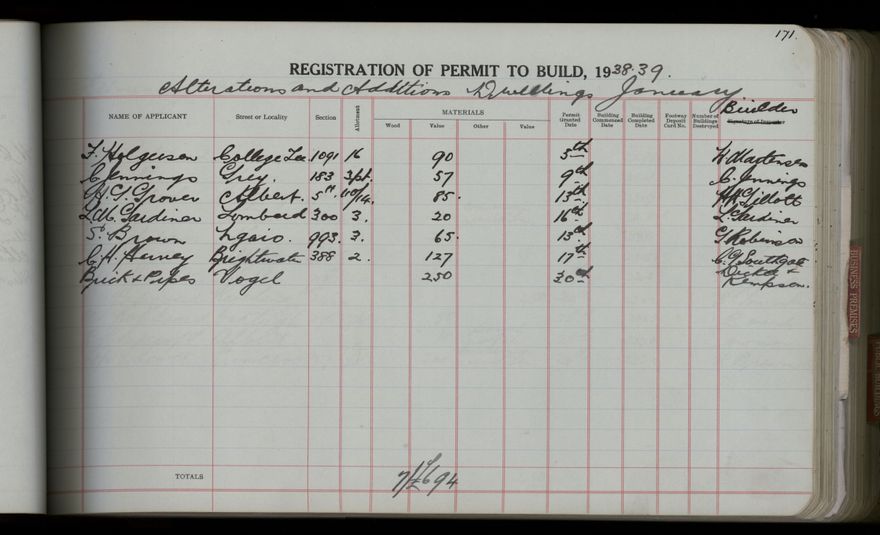 171.
REGISTRATION OF PERMIT TO BUILD, 1938·39.
Alterations and Additions Dwellings January
NAME OF APPLICANT Street or Locality Section Allotment MATERIALS Wood Value Other Value Permit Granted Date Building Commenced Date Building Completed Date Footway Deposit Card No. Number of Buildings Destroyed Builder Signature of Inspector
F. Holgerson College 1091 16 90 5th
C. Jennings Grey. 183 3/pt. 57 9th C. Jennings
H. G. Grover Albert. 85. 13th
L. M. Gardiner Lombard 300 3. 20 16th L. Gardiner
S. Brown Ngaio. 993. 3. 65. 13th G Robinson
C. H. Harvey Brightwater 388 2. 127 17th C. G. Southgate
Brick & Pipes Vogel 250 20th Dick &
Kempson.
TOTALS 7/£694
BUSINESS PREMISES